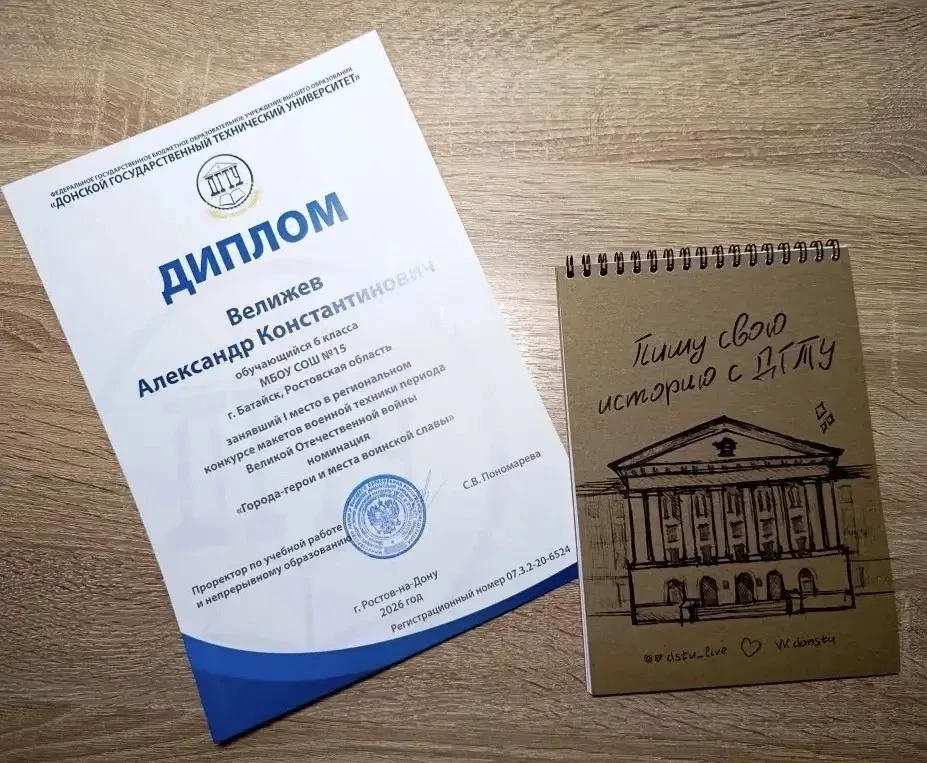 ФЕДЕРАЛЬНОЕ ГОСУДАРСТВЕННОЕ БЮДЖЕТНОЕ ОБРАЗОВАТЕЛЬНОЕ УЧРЕЖДЕНИЕ ВЫСШЕГО ОБРАЗОВАНИЯ
«ДОНСКОЙ ГОСУДАРСТВЕННЫЙ ТЕХНИЧЕСКИЙ УНИВЕРСИТЕТ»
ДГТУ
ДИПЛОМ
Велижев
Александр Константинович
обучающийся 6 класса
МБОУ СОШ №15
г. Батайск, Ростовская область
занявший I место в региональном
конкурсе макетов военной техники периода
Великой Отечественной войны
номинация
«Города-герои и места воинской славы»
Проректор по учебной работе
и непрерывному образованию
С.В. Пономарева
г. Ростов-на-Дону
2026 год
Регистрационный номер 07.3.2-20-6524
Пишу свою
историю с ДГТУ
dstu_live
VK donstu